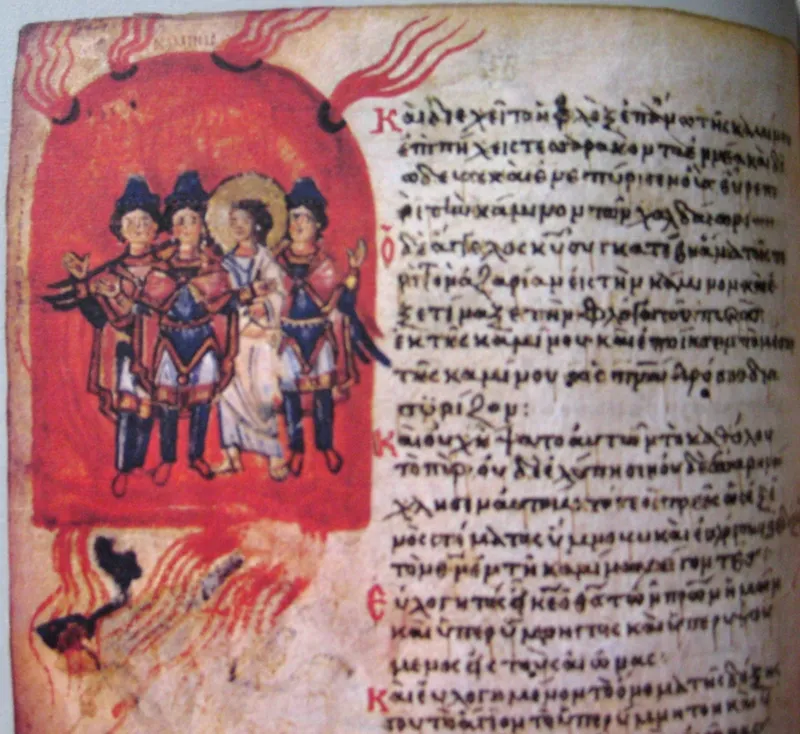 Καὶ διεχεῖτο ἡ φλὸξ ἐπάνω τῆς καμίνου
ἐπὶ πήχεις τεσσαράκοντα ἐννέα καὶ δι
ώδευσε καὶ ἐνεπύρισεν οὓς εὗρεν πε
ρὶ τὴν κάμινον τῶν χαλδαίων
Ὁ δὲ ἄγγελος κυ συγκατέβη ἅμα τοῖς πε
ρὶ τὸν ἀζαρίαν εἰς τὴν κάμινον καὶ ἐ
ξετίναξε τὴν φλόγα τοῦ πυρὸς
ἐκ τῆς καμίνου καὶ ἐποίησεν τὸ μέσον
τῆς καμίνου ὡς πνα δρόσου δια
συρίζον:
Καὶ οὐχ ἥψατο αὐτῶν τὸ καθόλου
τὸ πῦρ· οὐδὲ ἐλύπησεν οὐδὲ
αὐτούς· τότε οἱ τρεῖς ὡς ἐξ ἑ
νὸς στόματος ὕμνουν καὶ
τὸν θν ἐν τῇ καμίνω λέγοντες
Εὐλογητὸς εἶ κε ὁ θς τῶν πρων ἡμῶν
καὶ ὑπερυμνητὸς καὶ ὑπερυψού
μενος εἰς τοὺς αἰῶνας·
Καὶ εὐλογημένον τὸ ὄνομα τῆς δόξης
σου τὸ ἅγιον τὸ ὑπερυμνητὸν καὶ ὑ